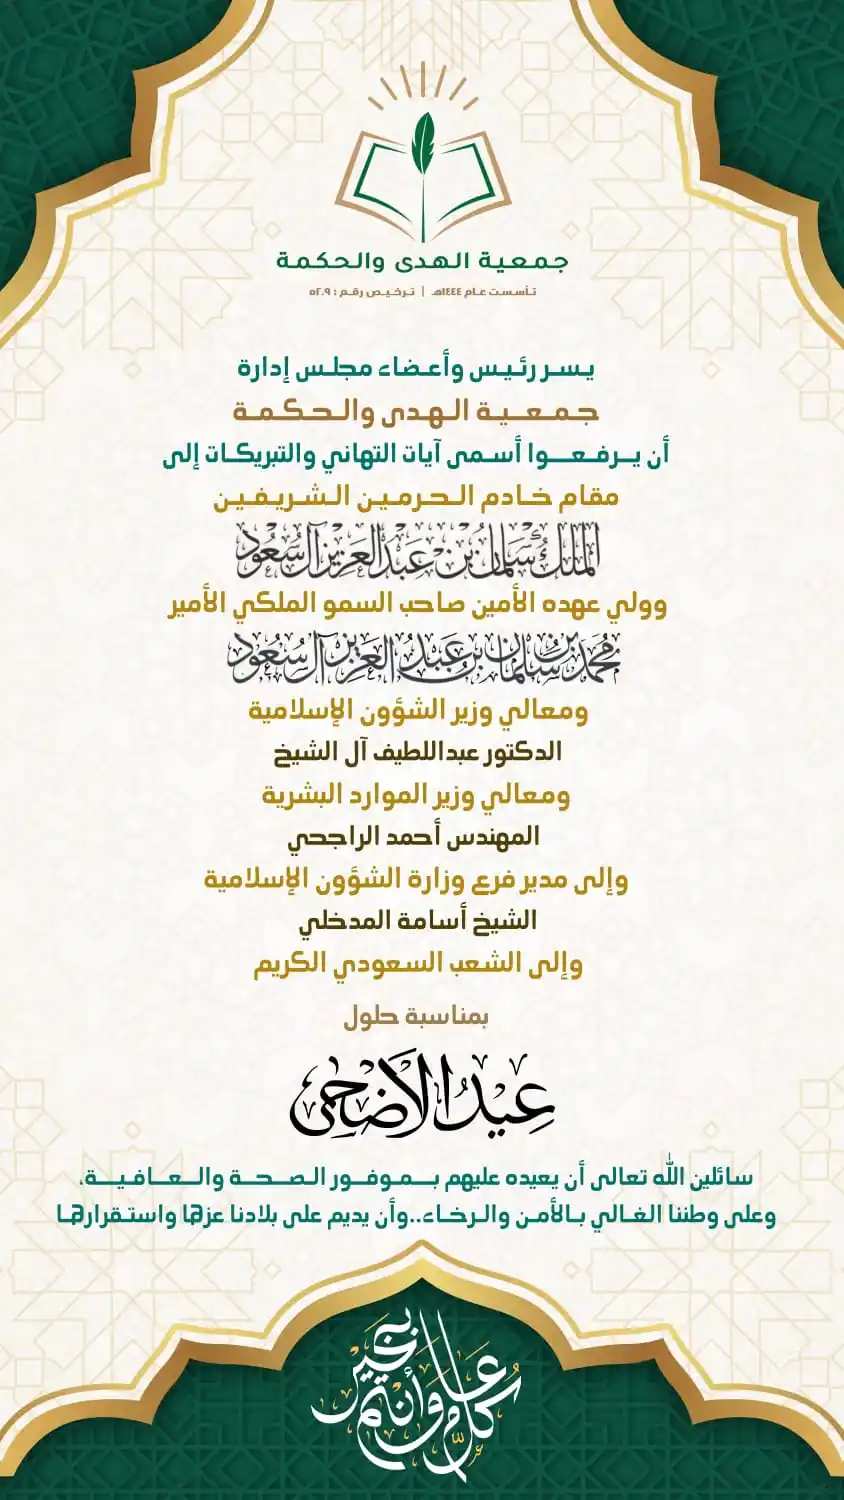 جمعية الهدى والحكمة
تأسست عام ١٤٤٤هـ | ترخيص رقم : ٥٢٠٩
يسر رئيس وأعضاء مجلس إدارة
جمعية الهدى والحكمة
أن يرفعوا أسمى آيات التهاني والتبريكات إلى
مقام خادم الحرمين الشريفين
الملك سلمان بن عبدالعزيز آل سعود
وولي عهده الأمين صاحب السمو الملكي الأمير
محمد بن سلمان بن عبدالعزيز آل سعود
ومعالي وزير الشؤون الإسلامية
الدكتور عبداللطيف آل الشيخ
ومعالي وزير الموارد البشرية
المهندس أحمد الراجحي
وإلى مدير فرع وزارة الشؤون الإسلامية
الشيخ أسامة المدخلي
وإلى الشعب السعودي الكريم
بمناسبة حلول
عيد الأضحى
سائلين الله تعالى أن يعيده عليهم بموفور الصحة والعافية،
وعلى وطننا الغالي بالأمن والرخاء..وأن يديم على بلادنا عزها واستقرارها
كل عام وأنتم بخير